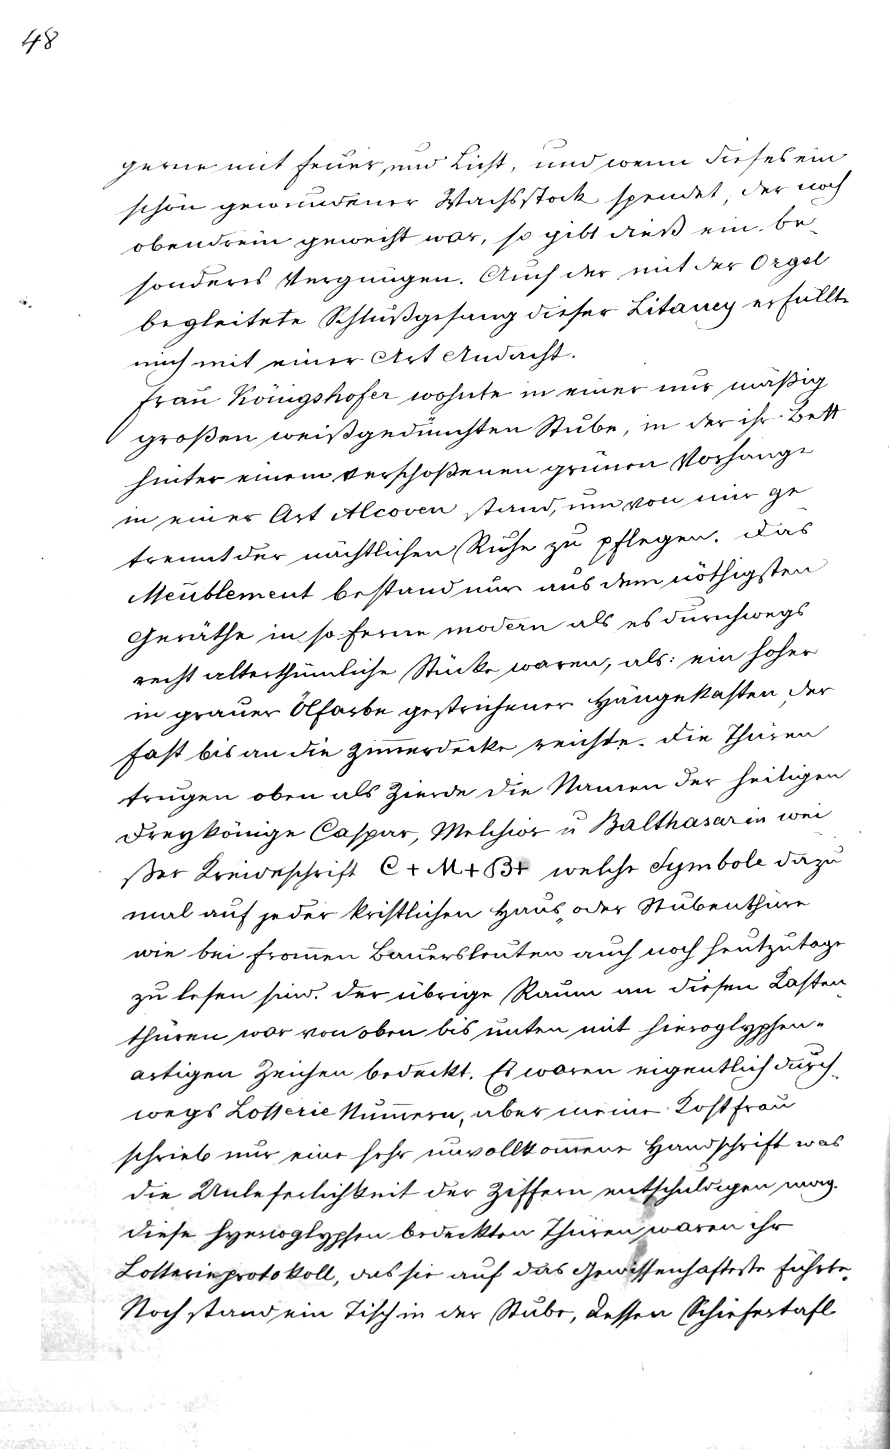 48
gerne mit Feuer, und Licht, und wenn dieses ein
schön gewundener Wachsstock spendet, der noch
obendrein geweiht war, so gibt dieß ein be¬
sonderes Vergnügen. Auch der mit der Orgel
begleitete Schlußgesang dieser Litaney erfüllte
mich mit einer Art Andacht.
Frau Königshofer wohnte in einer nur mäßig
großen weißgedünchten Stube, in der ihr Bett
hinter einem verschoßenen grünen Vorhange
in einer Art Alcoven stand, um von mir ge
trennt der nächtlichen Ruhe zu pflegen. Das
Meüblement bestand nur aus dem nöthigsten
Geräthe in so ferne modern als es durchwegs
recht alterthümliche Stücke waren, als: ein hoher
in grauer Ölfarbe gestrichener Hängekasten, der
fast bis an die Zim̅erdecke reichte. Die Thüren
trugen oben als Zierde die Namen der heiligen
Dreykönige Caspar, Melchior u Balthasar in wei
ßer Kreideschrift C + M + B + welche Symbole dazu
mal auf jeder kristlichen Haus, oder Stubenthüre
wie bei from̅en Bauersleuten auch noch heutzutage
zu lesen sind. Der übrige Raum an diesen Kasten¬
thüren war von oben bis unten mit hieroglyphen=
artigen Zeichen bedeckt. Es waren eigentlich durch¬
wegs Lotterie Num̅ern, aber meine Kostfrau
schrieb nur eine sehr unvollkom̅ene Handschrift was
die Unleserlichkeit der Ziffern entschuldigen mag.
Diese hyeroglyphen bedeckten Thüren waren ihr
Lotterieprotokoll, das sie auf das Gewissenhafteste führte.
Noch stand ein Tisch in der Stube, dessen Schiefertafl